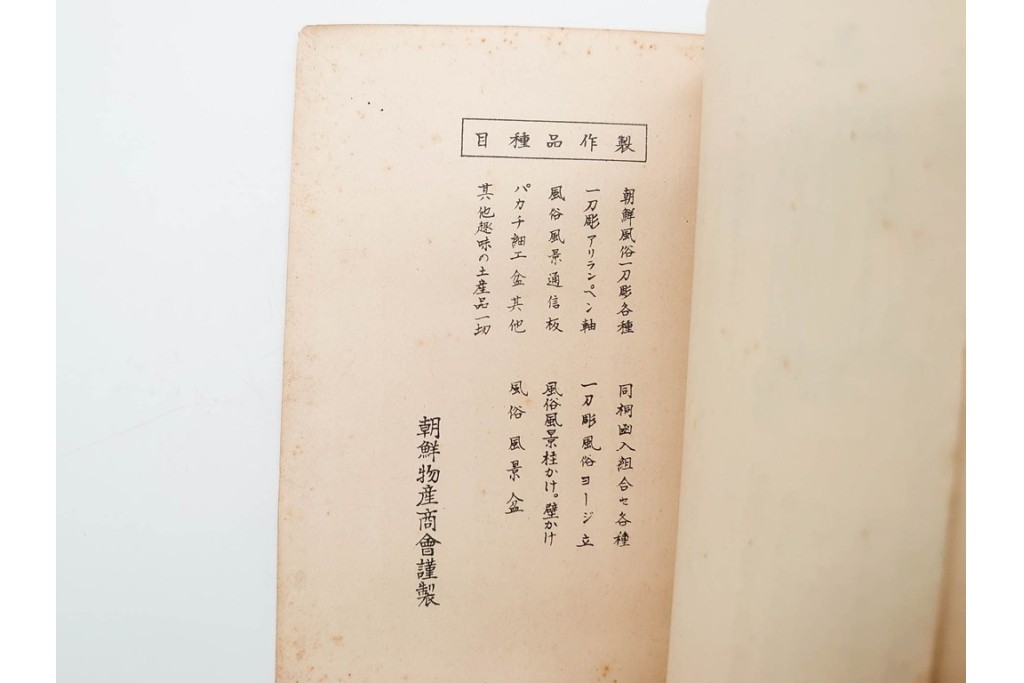 製作品種目
朝鮮風俗一刀彫各種
同桐函入組合セ各種
一刀彫アリランペン軸
一刀彫風俗ヨージ立
風俗風景通信板
風俗風景柱かけ。壁かけ
パカチ細工盆其他
風俗風景盆
其他趣味の土産品一切
朝鮮物産商會謹製